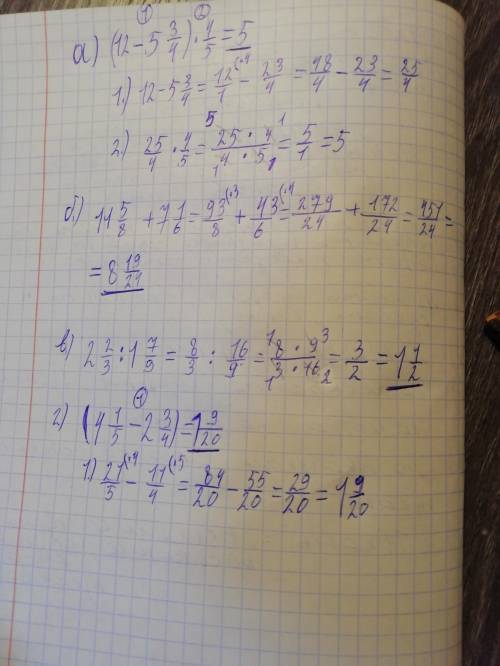 ① ②
а) (12 - 5 3/4) · 4/5 = 5
1.) 12 - 5 3/4 = 12/1 (·4 - 23/4 = 48/4 - 23/4 = 25/4
2.) 25/4 · 4/5 = 25 · 4 / 4 · 5 = 5/1 = 5
б.) 11 5/8 + 7 1/6 = 93/8 (·3 + 43/6 (·4 = 279/24 + 172/24 = 451/24 =
= 8 19/24
в) 2 2/3 : 1 7/9 = 8/3 : 16/9 = 8 · 9 / 3 · 16 = 3/2 = 1 1/2
①
г) (4 1/5 - 2 3/4) = 1 9/20
1) 21/5 (·4 - 11/4 (·5 = 84/20 - 55/20 = 29/20 = 1 9/20